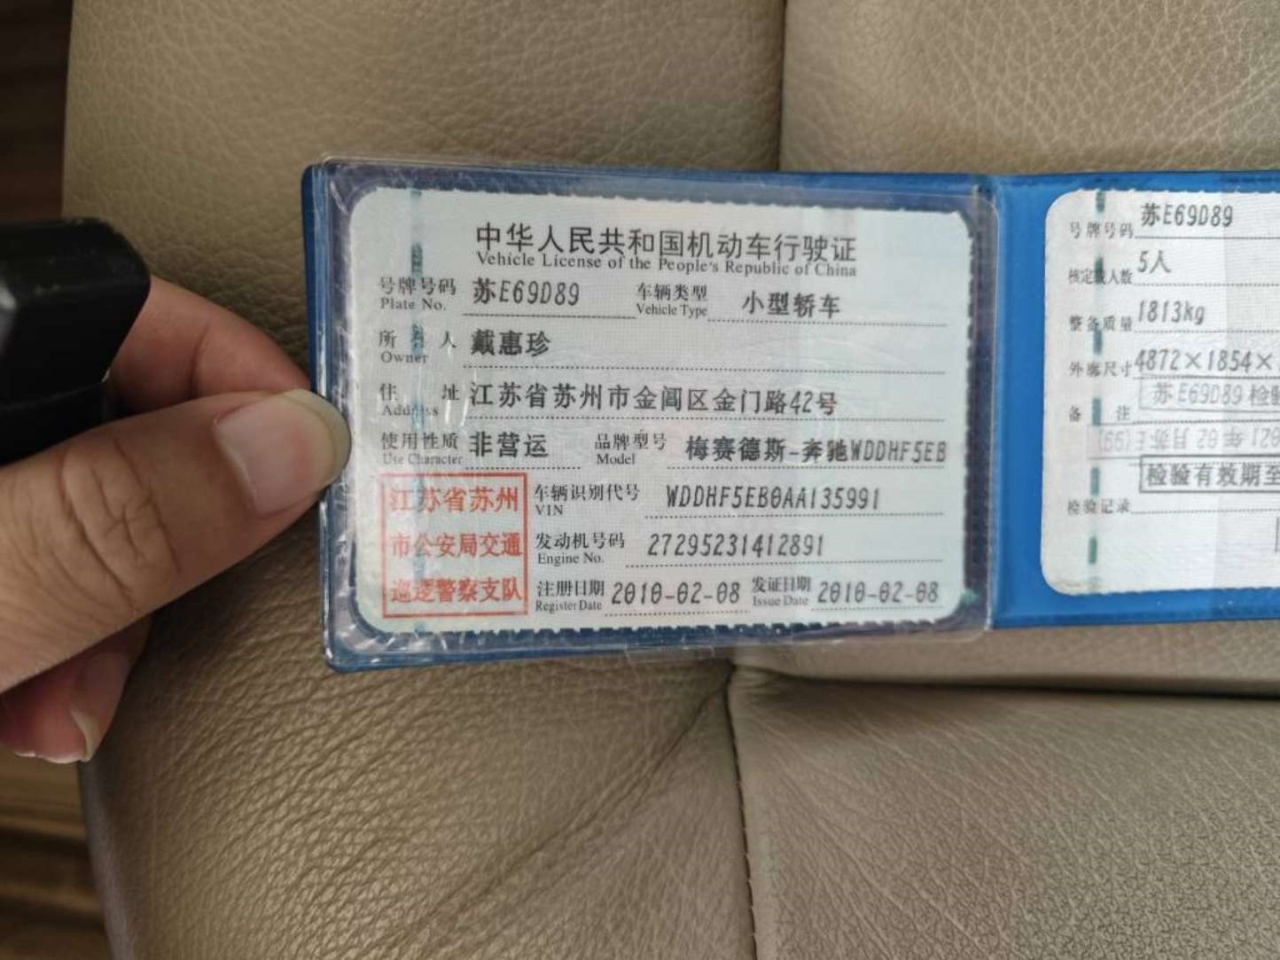 中华人民共和国机动车行驶证
Vehicle License of the People's Republic of China
号牌号码 苏E69D89 车辆类型 小型轿车
Plate No. Vehicle Type
所有人 戴惠珍
Owner
住址 江苏省苏州市金阊区金门路42号
Address
使用性质 非营运 品牌型号 梅赛德斯-奔驰WDDHF5EB
Use Character Model
江苏省苏州
市公安局交通
巡逻警察支队
车辆识别代号 WDDHF5EB0AA135991
VIN
发动机号码 27295231412891
Engine No.
注册日期 2010-02-08 发证日期 2010-02-08
Register Date Issue Date
号牌号码 苏E69D89
核定载人数 5人
整备质量 1813kg
外廓尺寸 4872×1854×
备注 苏E69D89 检验
检验有效期至
检验记录